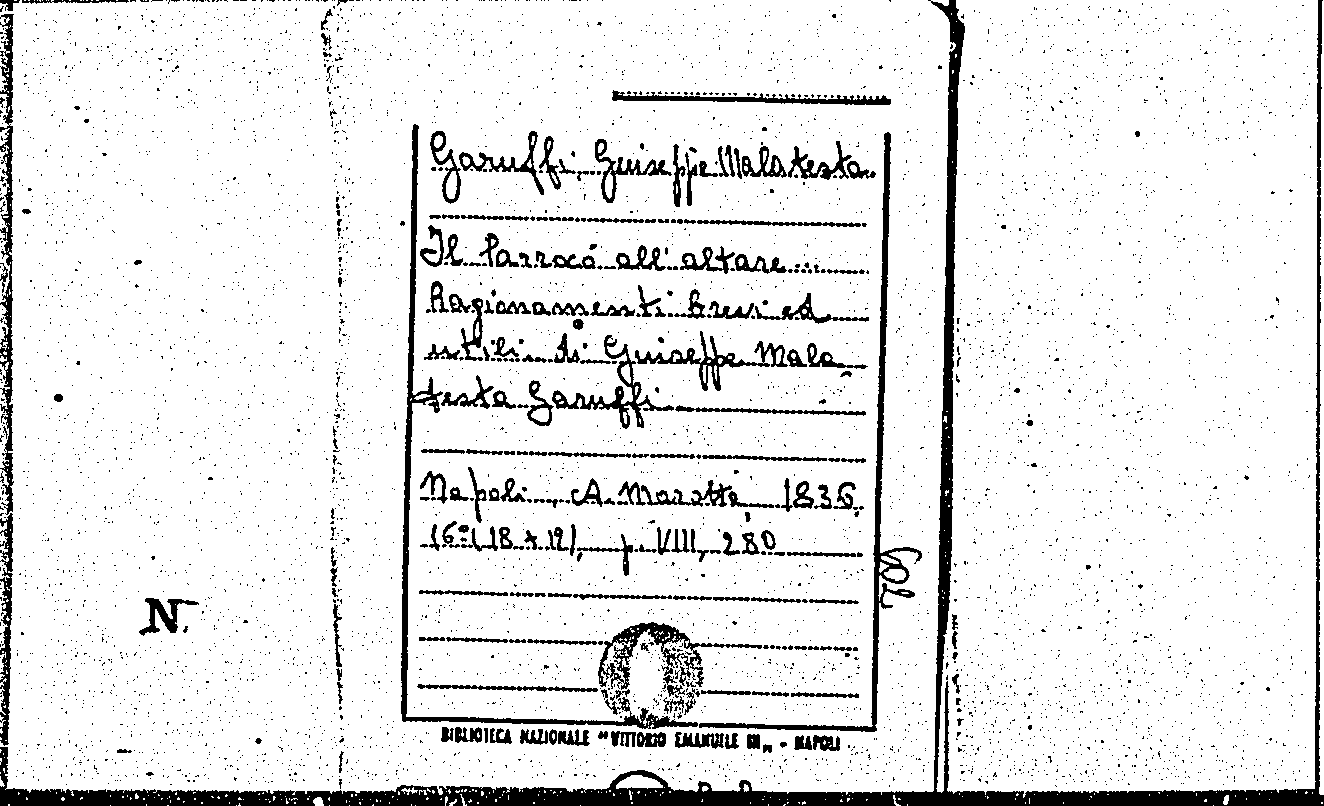 Garuffi, Giuseppe Malatesta.
Il Parroco all' altare...
Ragionamenti brevi ed
utili di Giuseppe Mala
testa Garuffi.
Napoli, A. Marotta, 1836,
16º (18 x 12), p. VIII, 280
N.
BIBLIOTECA NAZIONALE "VITTORIO EMANUELE III" - NAPOLI